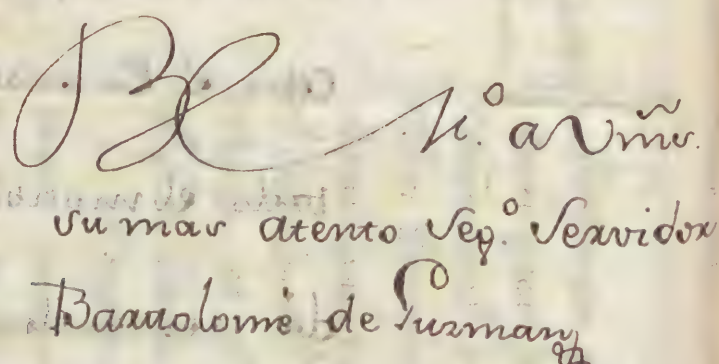 B L M.º a Vms.
su mas atento Seg.º Servidor
Barrolomè de Guzman